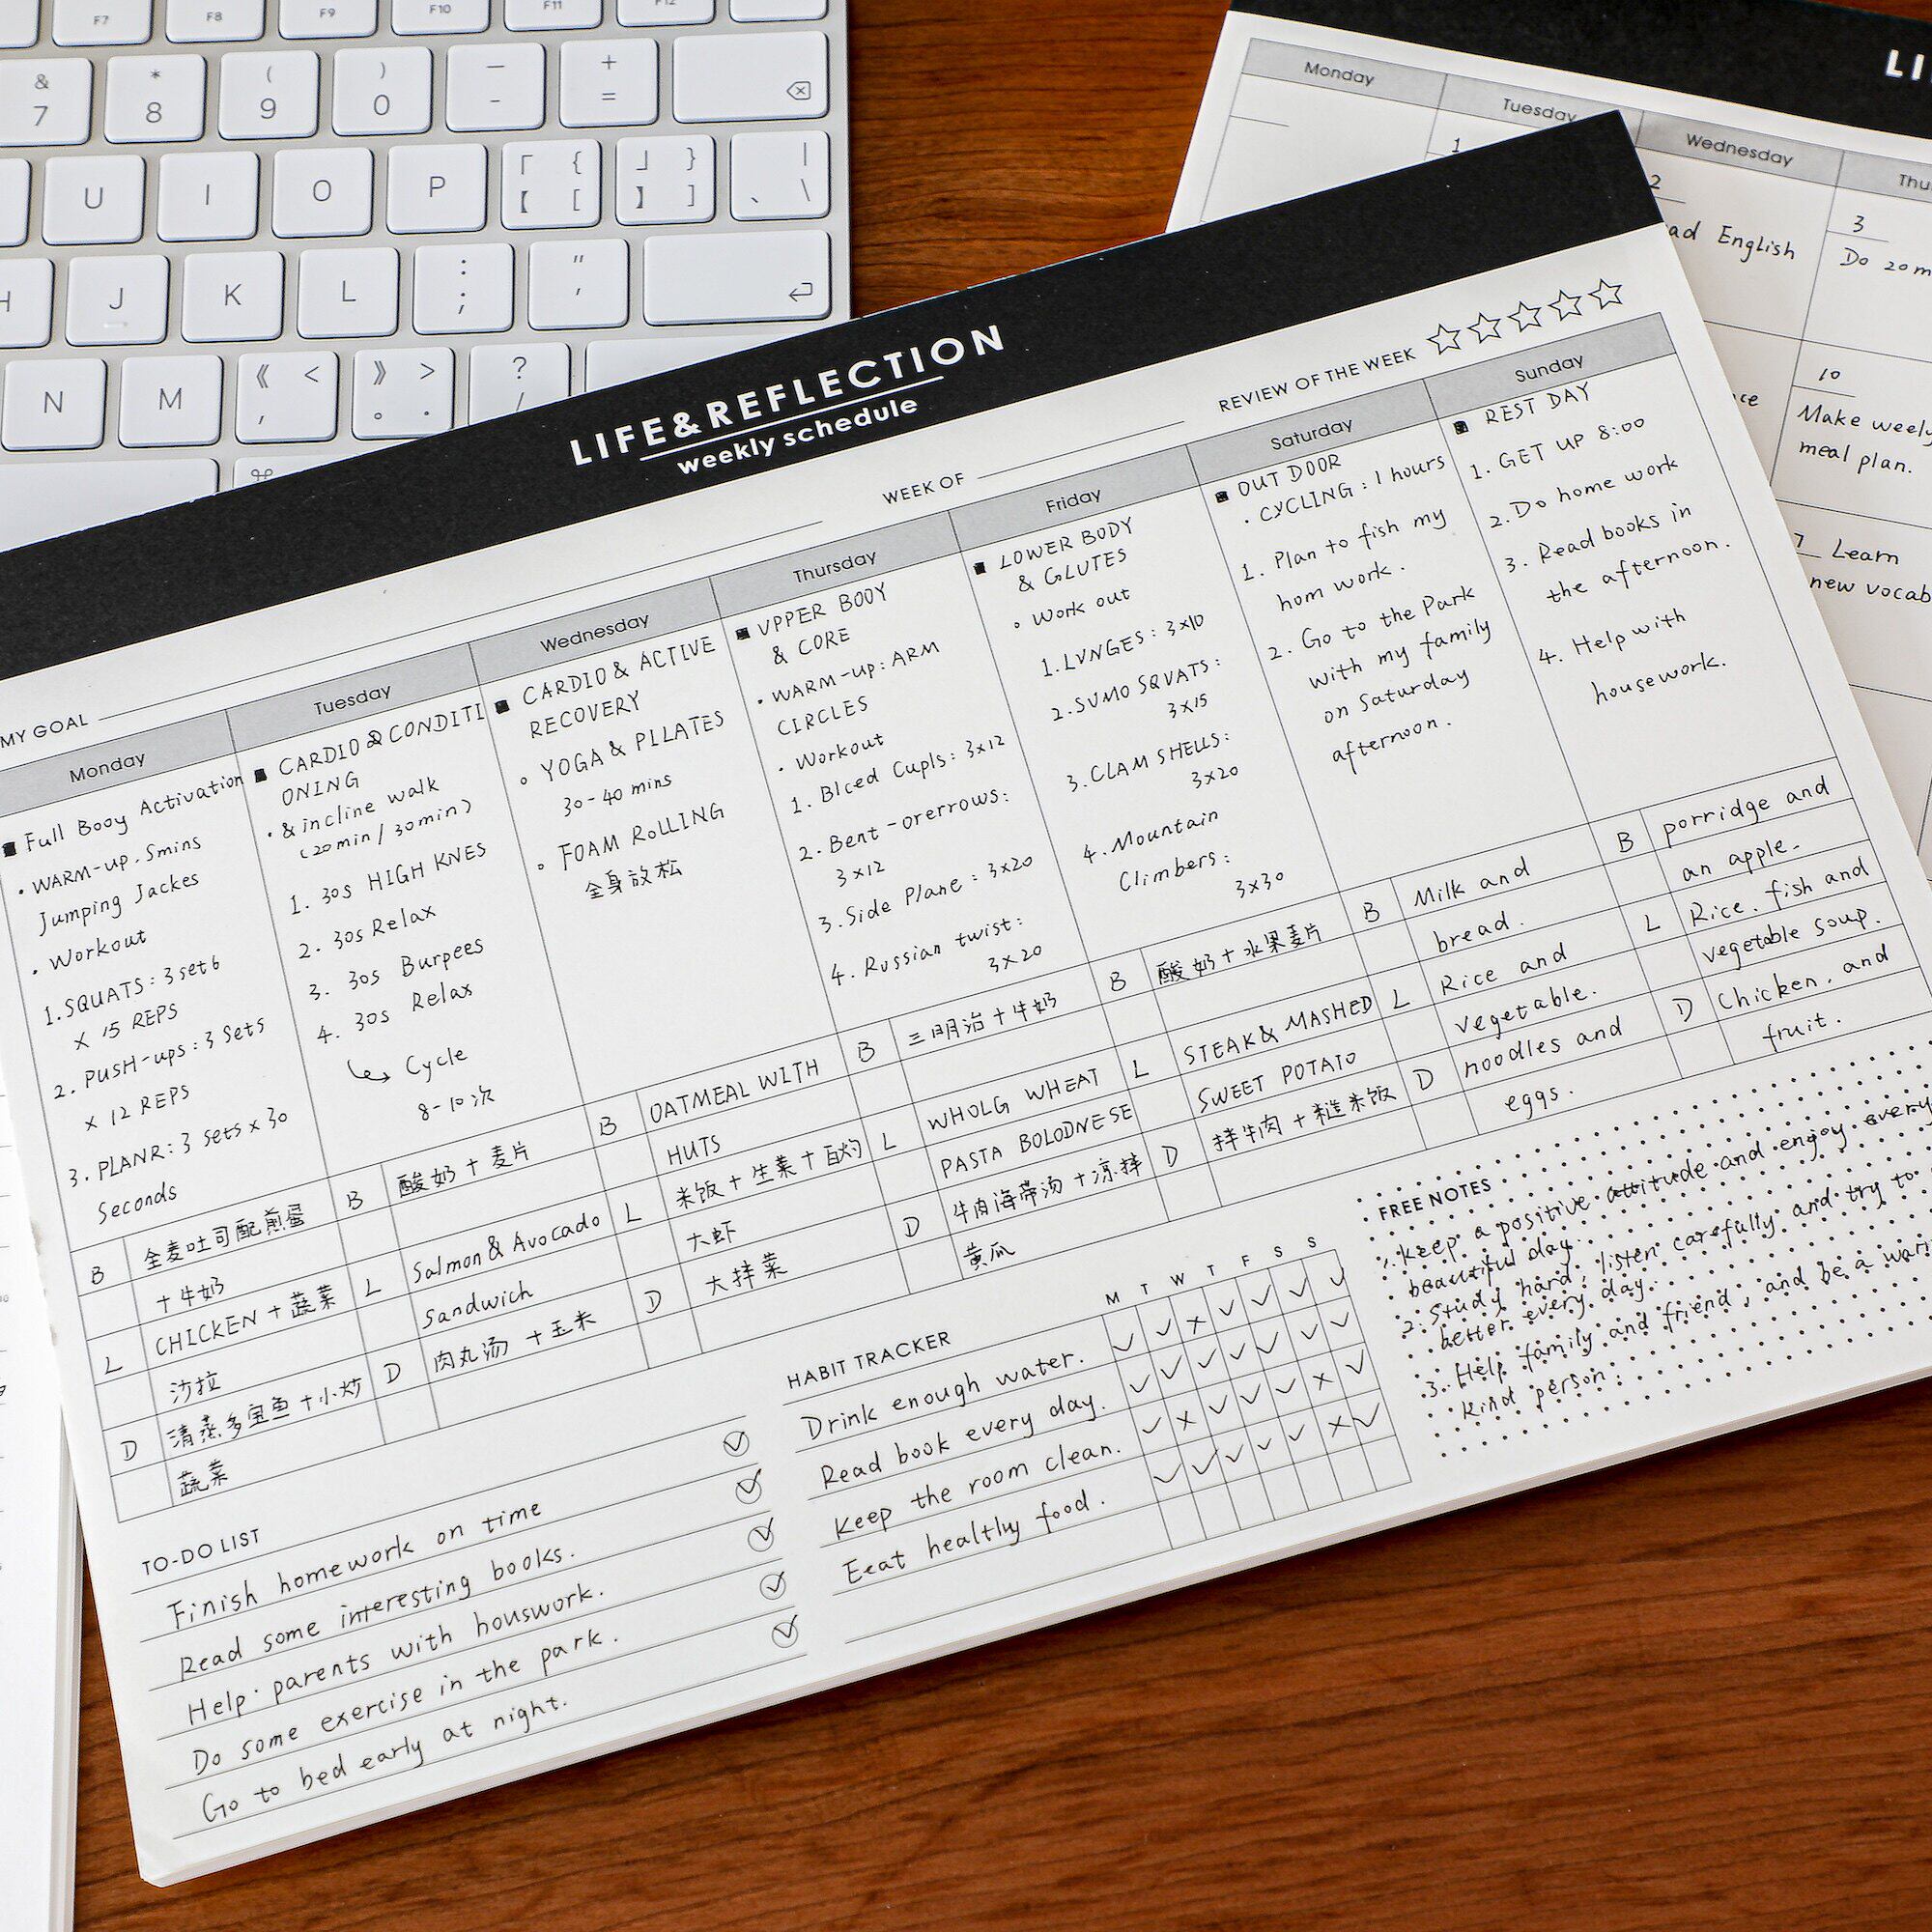 F7
F8
F9
F10
F11
F12
& 7
* 8
( 9
) 0
— -
+ =
U
I
O
P
「 { 【 [
」 } 】 ]
| 、 \
H
J
K
L
: ;
" '
N
M
《 < ,
》 > 。 .
? /
⌘
LI
Monday
Tuesday
Wednesday
Thu
1
2
ad English
3
Do 20 m
10
Make weely
meal plan.
ce
7 Learn
new vocab
LIFE&REFLECTION
weekly schedule
MY GOAL
WEEK OF
REVIEW OF THE WEEK ☆☆☆☆☆
Monday
Full Booy Activation
• WARM-up. 5mins
Jumping Jackes
• Workout
1. SQUATS: 3 set6
X 15 REPS
2. PUSH-ups: 3 Sets
x 12 REPS
3. PLANR: 3 Sets x 30
Seconds
B 全麦吐司配煎蛋
+牛奶
L CHICKEN + 蔬菜
沙拉
D 清蒸多宝鱼+小炒
蔬菜
Tuesday
CARDIO & CONDITI
ONING
• & incline walk
(20min / 30min)
1. 30s HIGH KNES
2. 30s Relax
3. 30s Burpees
4. 30s Relax
↪ Cycle
8-10次
B 酸奶+麦片
L Salmon & Avocado
Sandwich
D 肉丸汤 + 玉米
Wednesday
CARDIO & ACTIVE
RECOVERY
◦ YOGA & PILATES
30-40 mins
◦ FOAM RoLLING
全身放松
B OATMEAL WITH
HUTS
L 米饭+生菜+白灼
大虾
D 大拌菜
Thursday
VPPER BODY
& CORE
• WARM-UP: ARM
CIRCLES
• Workout
1. BIced Cupls: 3x12
2. Bent-orerrows:
3x12
3. Side Plane: 3x20
4. Russian twist:
3x20
B 三明治+牛奶
L WHOLG WHEAT
PASTA BOLODNESE
D 牛肉海带汤+凉拌
黄瓜
Friday
LOWER BODY
& GLUTES
◦ Work out
1. LVNGES: 3x10
2. SVMO SQVATS:
3x15
3. CLAM SHELLS:
3x20
4. Mountain
Climbers:
3x30
B 酸奶+水果麦片
L STEAK & MASHED
SWEET POTATO
D 拌牛肉+糙米饭
Saturday
OUT DOOR
• CYCLING: 1 hours
1. Plan to fish my
hom work.
2. Go to the Park
with my family
on Saturday
afternoon.
B Milk and
bread.
L Rice and
vegetable.
D noodles and
eggs.
Sunday
REST DAY
1. GET UP 8:00
2. Do home work
3. Read books in
the afternoon.
4. Help with
housework.
B porridge and
an apple.
L Rice. fish and
vegetable soup.
D Chicken. and
fruit.
TO-DO LIST
Finish homework on time ✓
Read some interesting books. ✓
Help parents with houswork. ✓
Do some exercise in the park. ✓
Go to bed early at night. ✓
HABIT TRACKER M T W T F S S
Drink enough water. ✓ ✓ x ✓ ✓ ✓ ✓
Read book every day. ✓ ✓ ✓ ✓ ✓ ✓ ✓
Keep the room clean. ✓ x ✓ ✓ ✓ x ✓
Eeat healthy food. ✓ ✓ ✓ ✓ ✓ x ✓
FREE NOTES
1. Keep a positive attitude and enjoy every
beautiful day.
2. Study hard, listen carefully and try to
better every day.
3. Help family and friend, and be a warm
kind person.